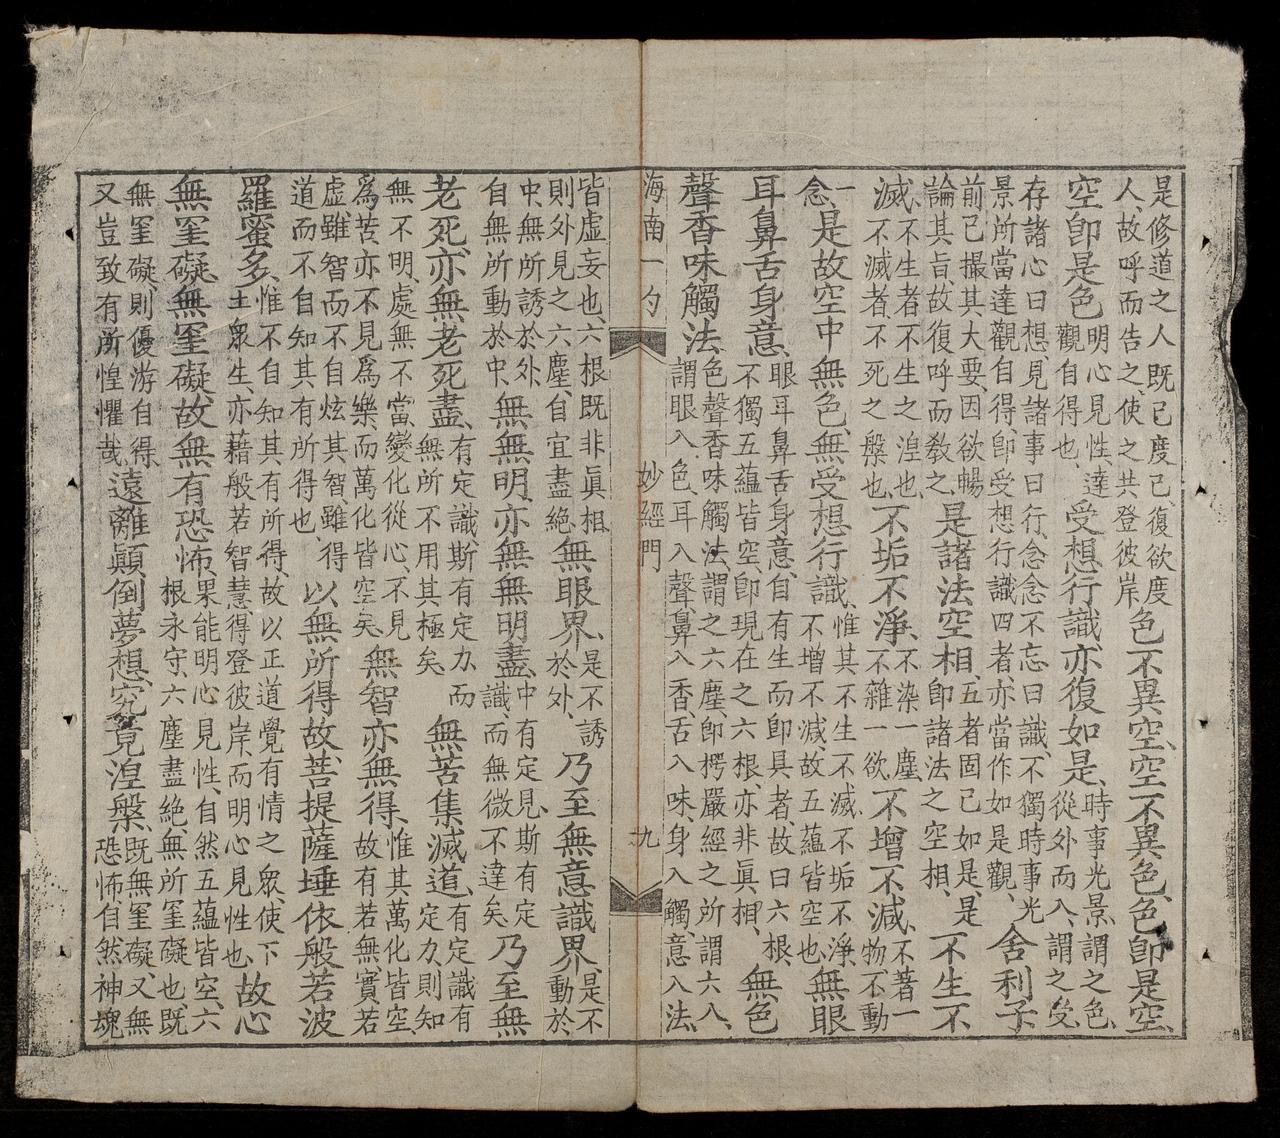 是修道之人既已度己復欲度人、故呼而告之、使之共登彼岸色不異空、空不異色、色卽是空、
空卽是色明心見性、達觀自得也、受想行識、亦復如是、時事光景、謂之色、從外而入、謂之受、
存諸心曰想、見諸事曰行、念念不忘曰識、不獨時事光景所當達觀自得、卽受想行識四者、亦當作如是觀、舍利子、
前己撮其大要、因欲暢論其旨、故復呼而敎之、是諸法空相、五者固己如是、是卽諸法之空相、不生不
滅、不生者、不生之湼也、不滅者、不死之槃也、不垢不淨、不染一塵、不雜一欲、不增不減、不著一物、不動
一念、是故空中無色、無受想行識、惟其不生不滅、不垢不淨、不增不減、故五蘊皆空也、無眼
耳鼻舌身意、眼耳鼻舌身意、自有生而卽具者、故曰六根、不獨五蘊皆空、卽現在之六根、亦非眞相、無色
聲香味觸法、色聲香味觸法、謂之六塵、卽楞嚴經之所謂六入、謂眼入色、耳入聲、鼻入香、舌入味、身入觸、意入法、
海南一勺 妙經門 九
皆虛妄也、六根既非眞相則外見之六塵、自宜盡絕無眼界、是不誘於外、乃至無意識界、是不動於
中、無所誘於外、自無所動於中、無無明、亦無無明盡、中有定見、斯有定識、而無微不達矣乃至無
老死、亦無老死盡、有定識、斯有定力、而無所不用其極矣無苦集滅道、有定識有定力、則知
無不明、處無不當、變化從心、不見爲苦、亦不見爲樂、而萬化皆空矣無智亦無得、惟其萬化皆空、故有若無、實若
虛、雖智而不自炫其智、雖得道而不自知其有所得也、以無所得故、菩提薩埵、依般若波
羅蜜多、惟不自知其有所得、故以正道覺有情之眾、使下土眾生、亦藉般若智慧、得登彼岸、而明心見性也、故心
無罣礙、無罣礙故、無有恐怖、果能明心見性、自然五蘊皆空、六根永守、六塵盡絕、無所罣礙也、既
無罣礙、則優游自得、又豈致有所惶懼哉遠離顚倒夢想、究竟湼槃、既無罣礙、又無恐怖、自然神魂